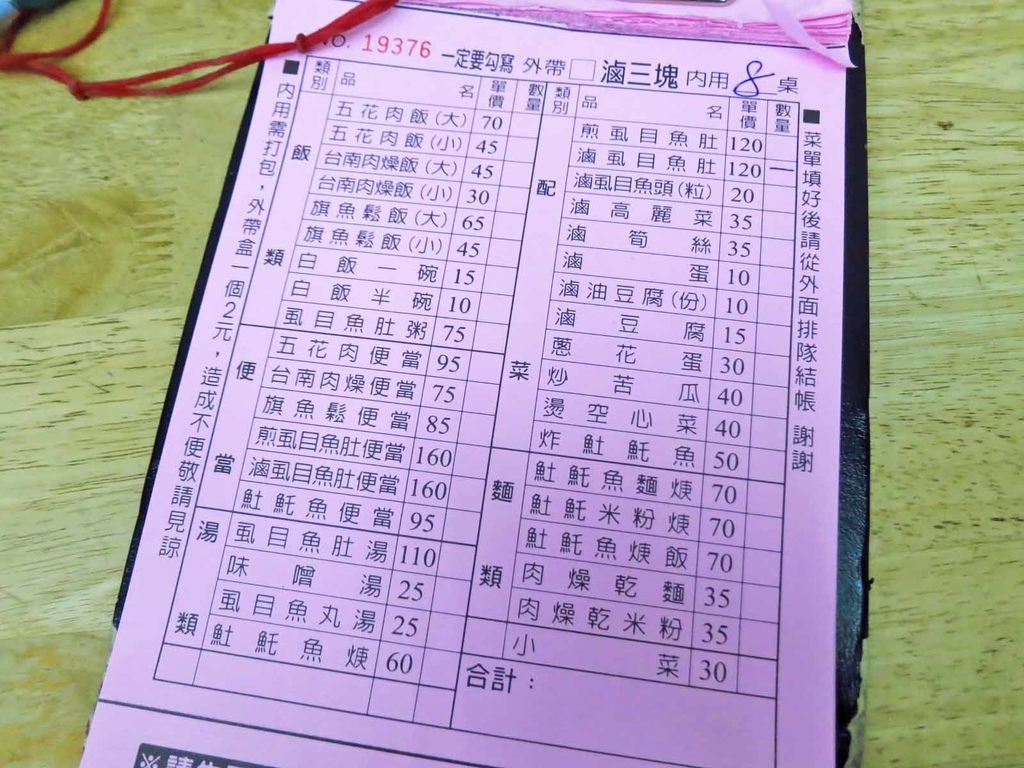 NO. 19376 一定要勾寫 外帶□ 滷三塊 內用 8 桌
■內用需打包，外帶盒一個2元，造成不便敬請見諒
類別 品名 單價 數量
飯類
五花肉飯(大) 70
五花肉飯(小) 45
台南肉燥飯(大) 45
台南肉燥飯(小) 30
旗魚鬆飯(大) 65
旗魚鬆飯(小) 45
白飯一碗 15
白飯半碗 10
虱目魚肚粥 75
便當
五花肉便當 95
台南肉燥便當 75
旗魚鬆便當 85
煎虱目魚肚便當 160
滷虱目魚肚便當 160
魠魚便當 95
湯類
虱目魚肚湯 110
味噌湯 25
虱目魚丸湯 25
魠魚焿 60
類別 品名 單價 數量
配菜
煎虱目魚肚 120
滷虱目魚肚 120 一
滷虱目魚頭(粒) 20
滷高麗菜 35
滷筍絲 35
滷蛋 10
滷油豆腐(份) 10
滷豆腐 15
蔥花蛋 30
炒苦瓜 40
燙空心菜 40
炸魠魚 50
麵類
魠魚麵焿 70
魠米粉焿 70
魠魚焿飯 70
肉燥乾麵 35
肉燥乾米粉 35
小菜 30
合計：
■菜單填好後請從外面排隊結帳 謝謝